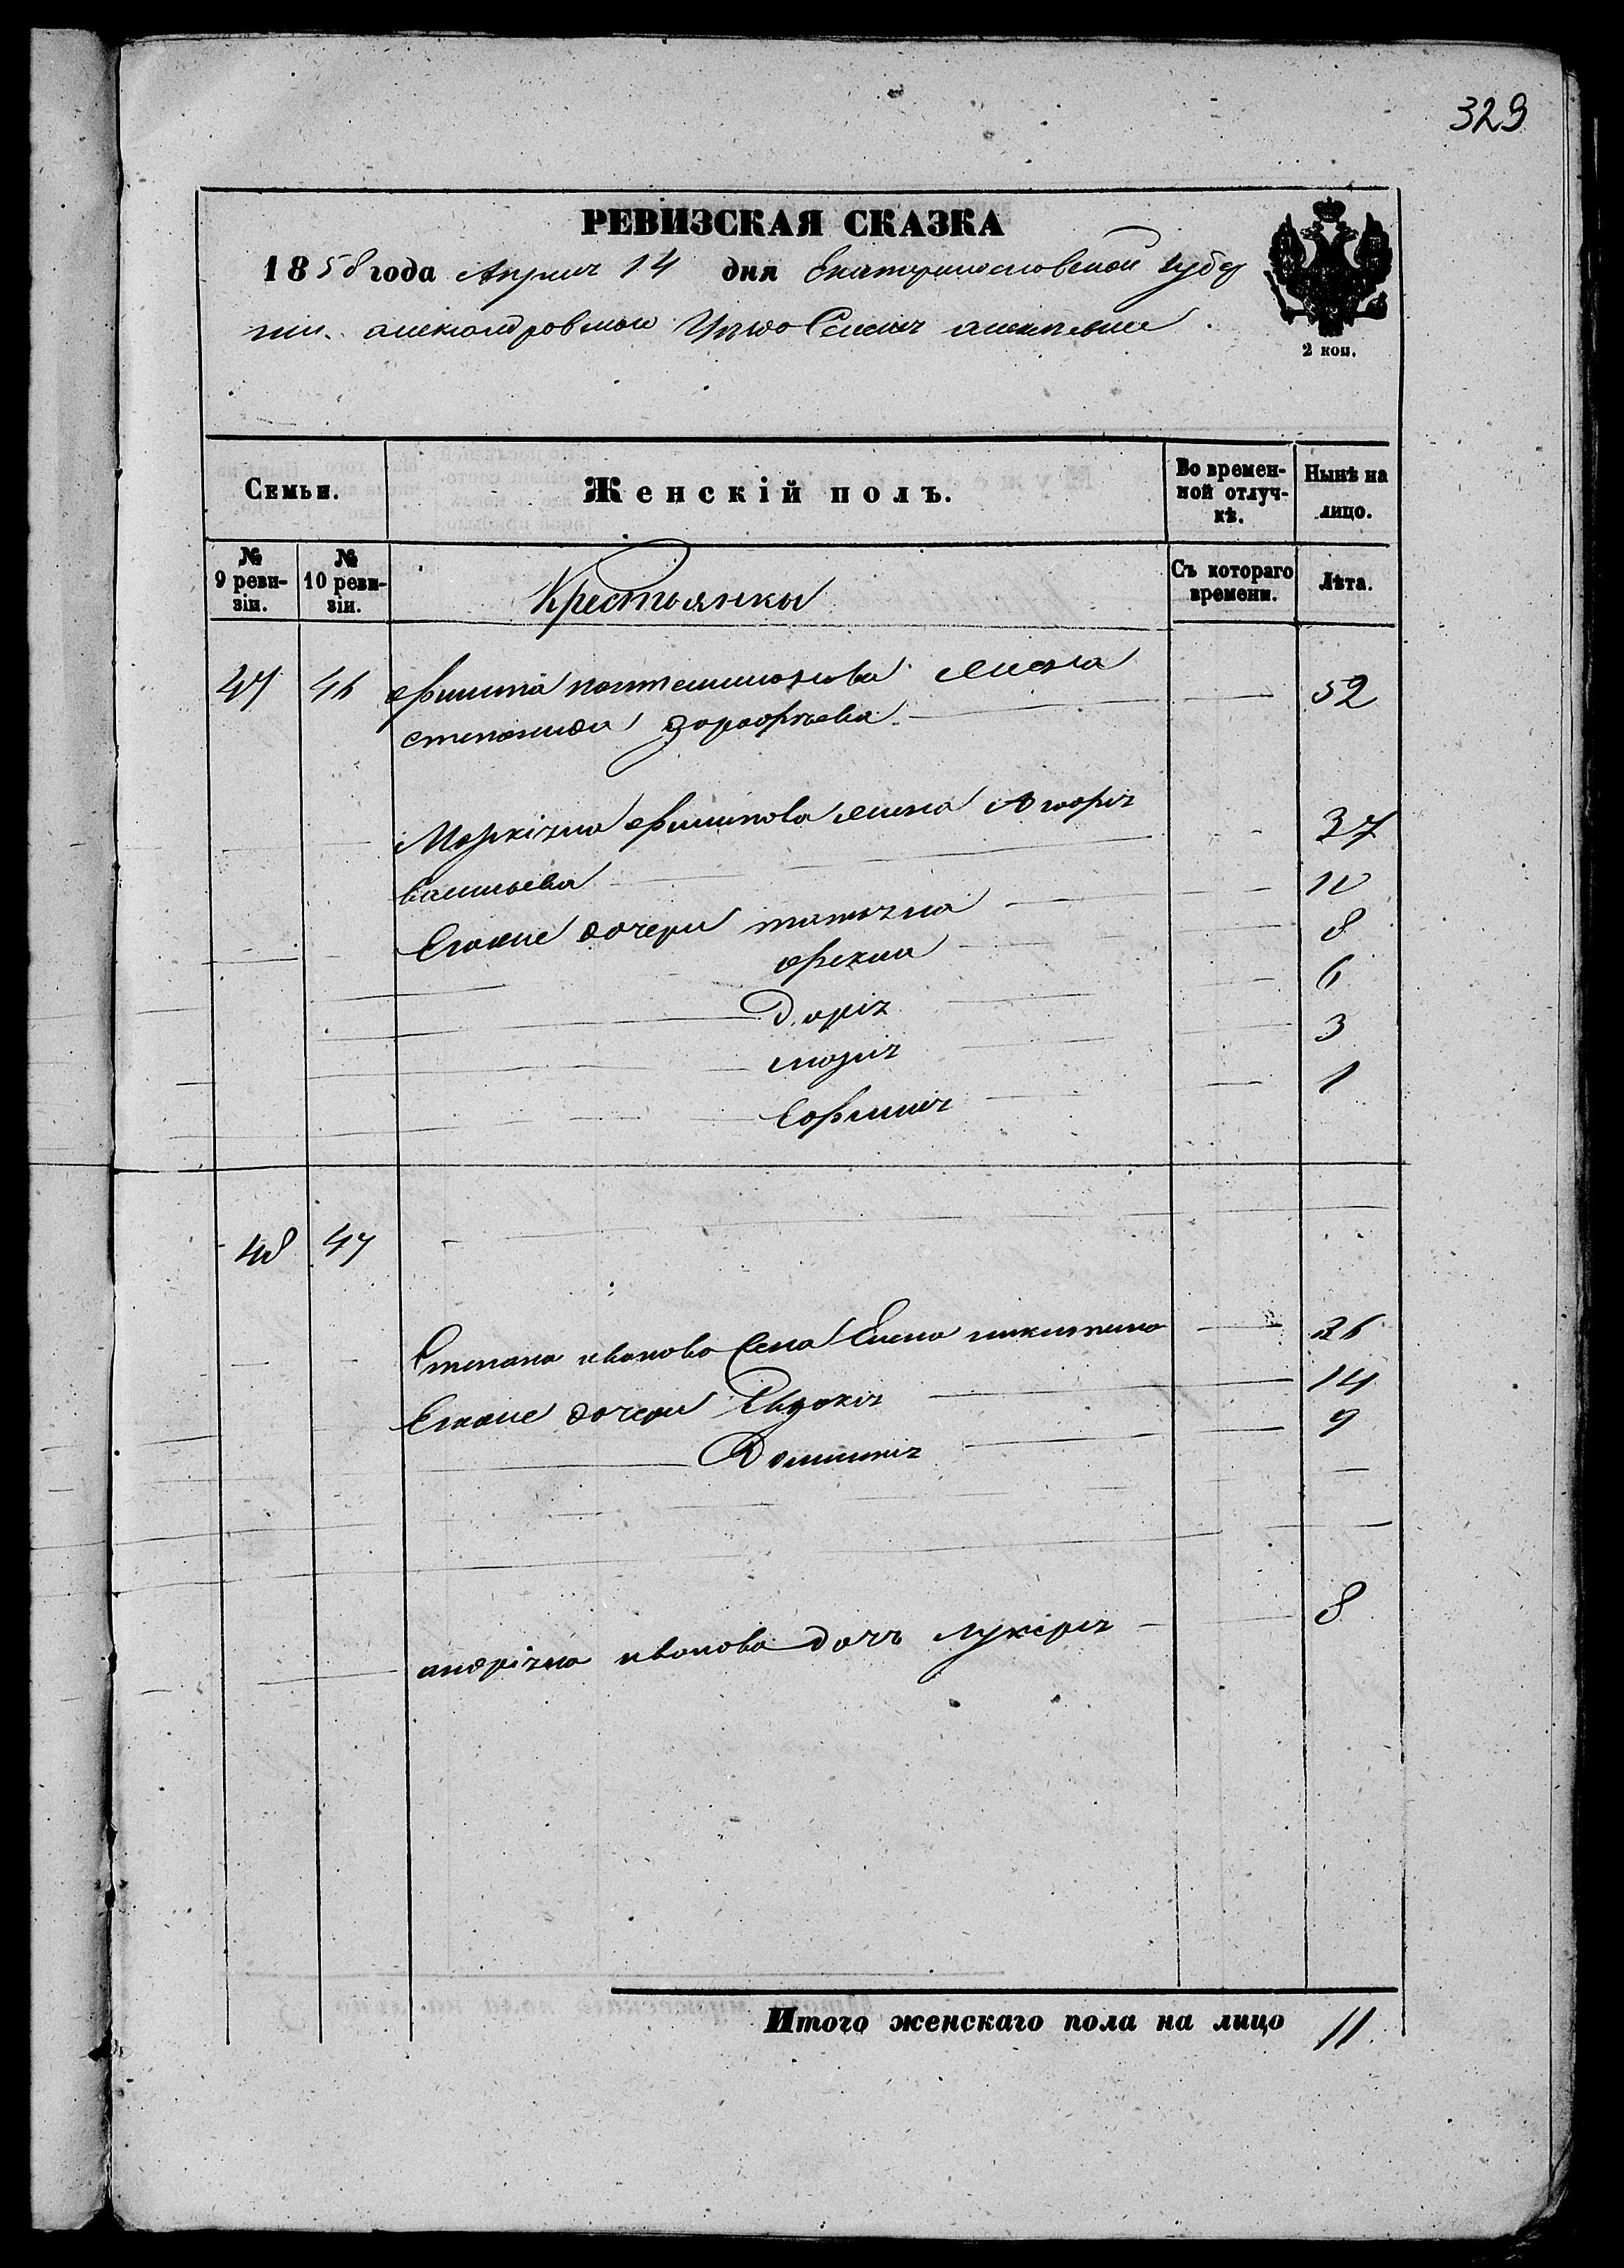 329
РЕВИЗСКАЯ СКАЗКА
1858 года Апреля 14 дня Екатеринославской губер
нии. александровского Уезда Селения
2 коп.
Семьи.
Женскій полъ.
Во времен-
ной отлуч-
кѣ.
Нынѣ на
лицо.
№
9 реви-
зіи.
№
10 реви-
зіи.
Крестьянки
Съ котораго
времени.
Лѣта.
47 46 филипа пантелимонова жена
степанида дорофѣева 52
Маркіяна филипова жена Агафія 37
васильева
Егоже дочери татяна 10
фекла 8
Дарія 6
марія 3
Ефимія 1
48 47
Степана иванова жена Елена никитина 36
Егоже дочери Евдокія 14
Домникія 9
андріяна иванова дочъ лукерія 8
Итого женскаго пола на лицо 11